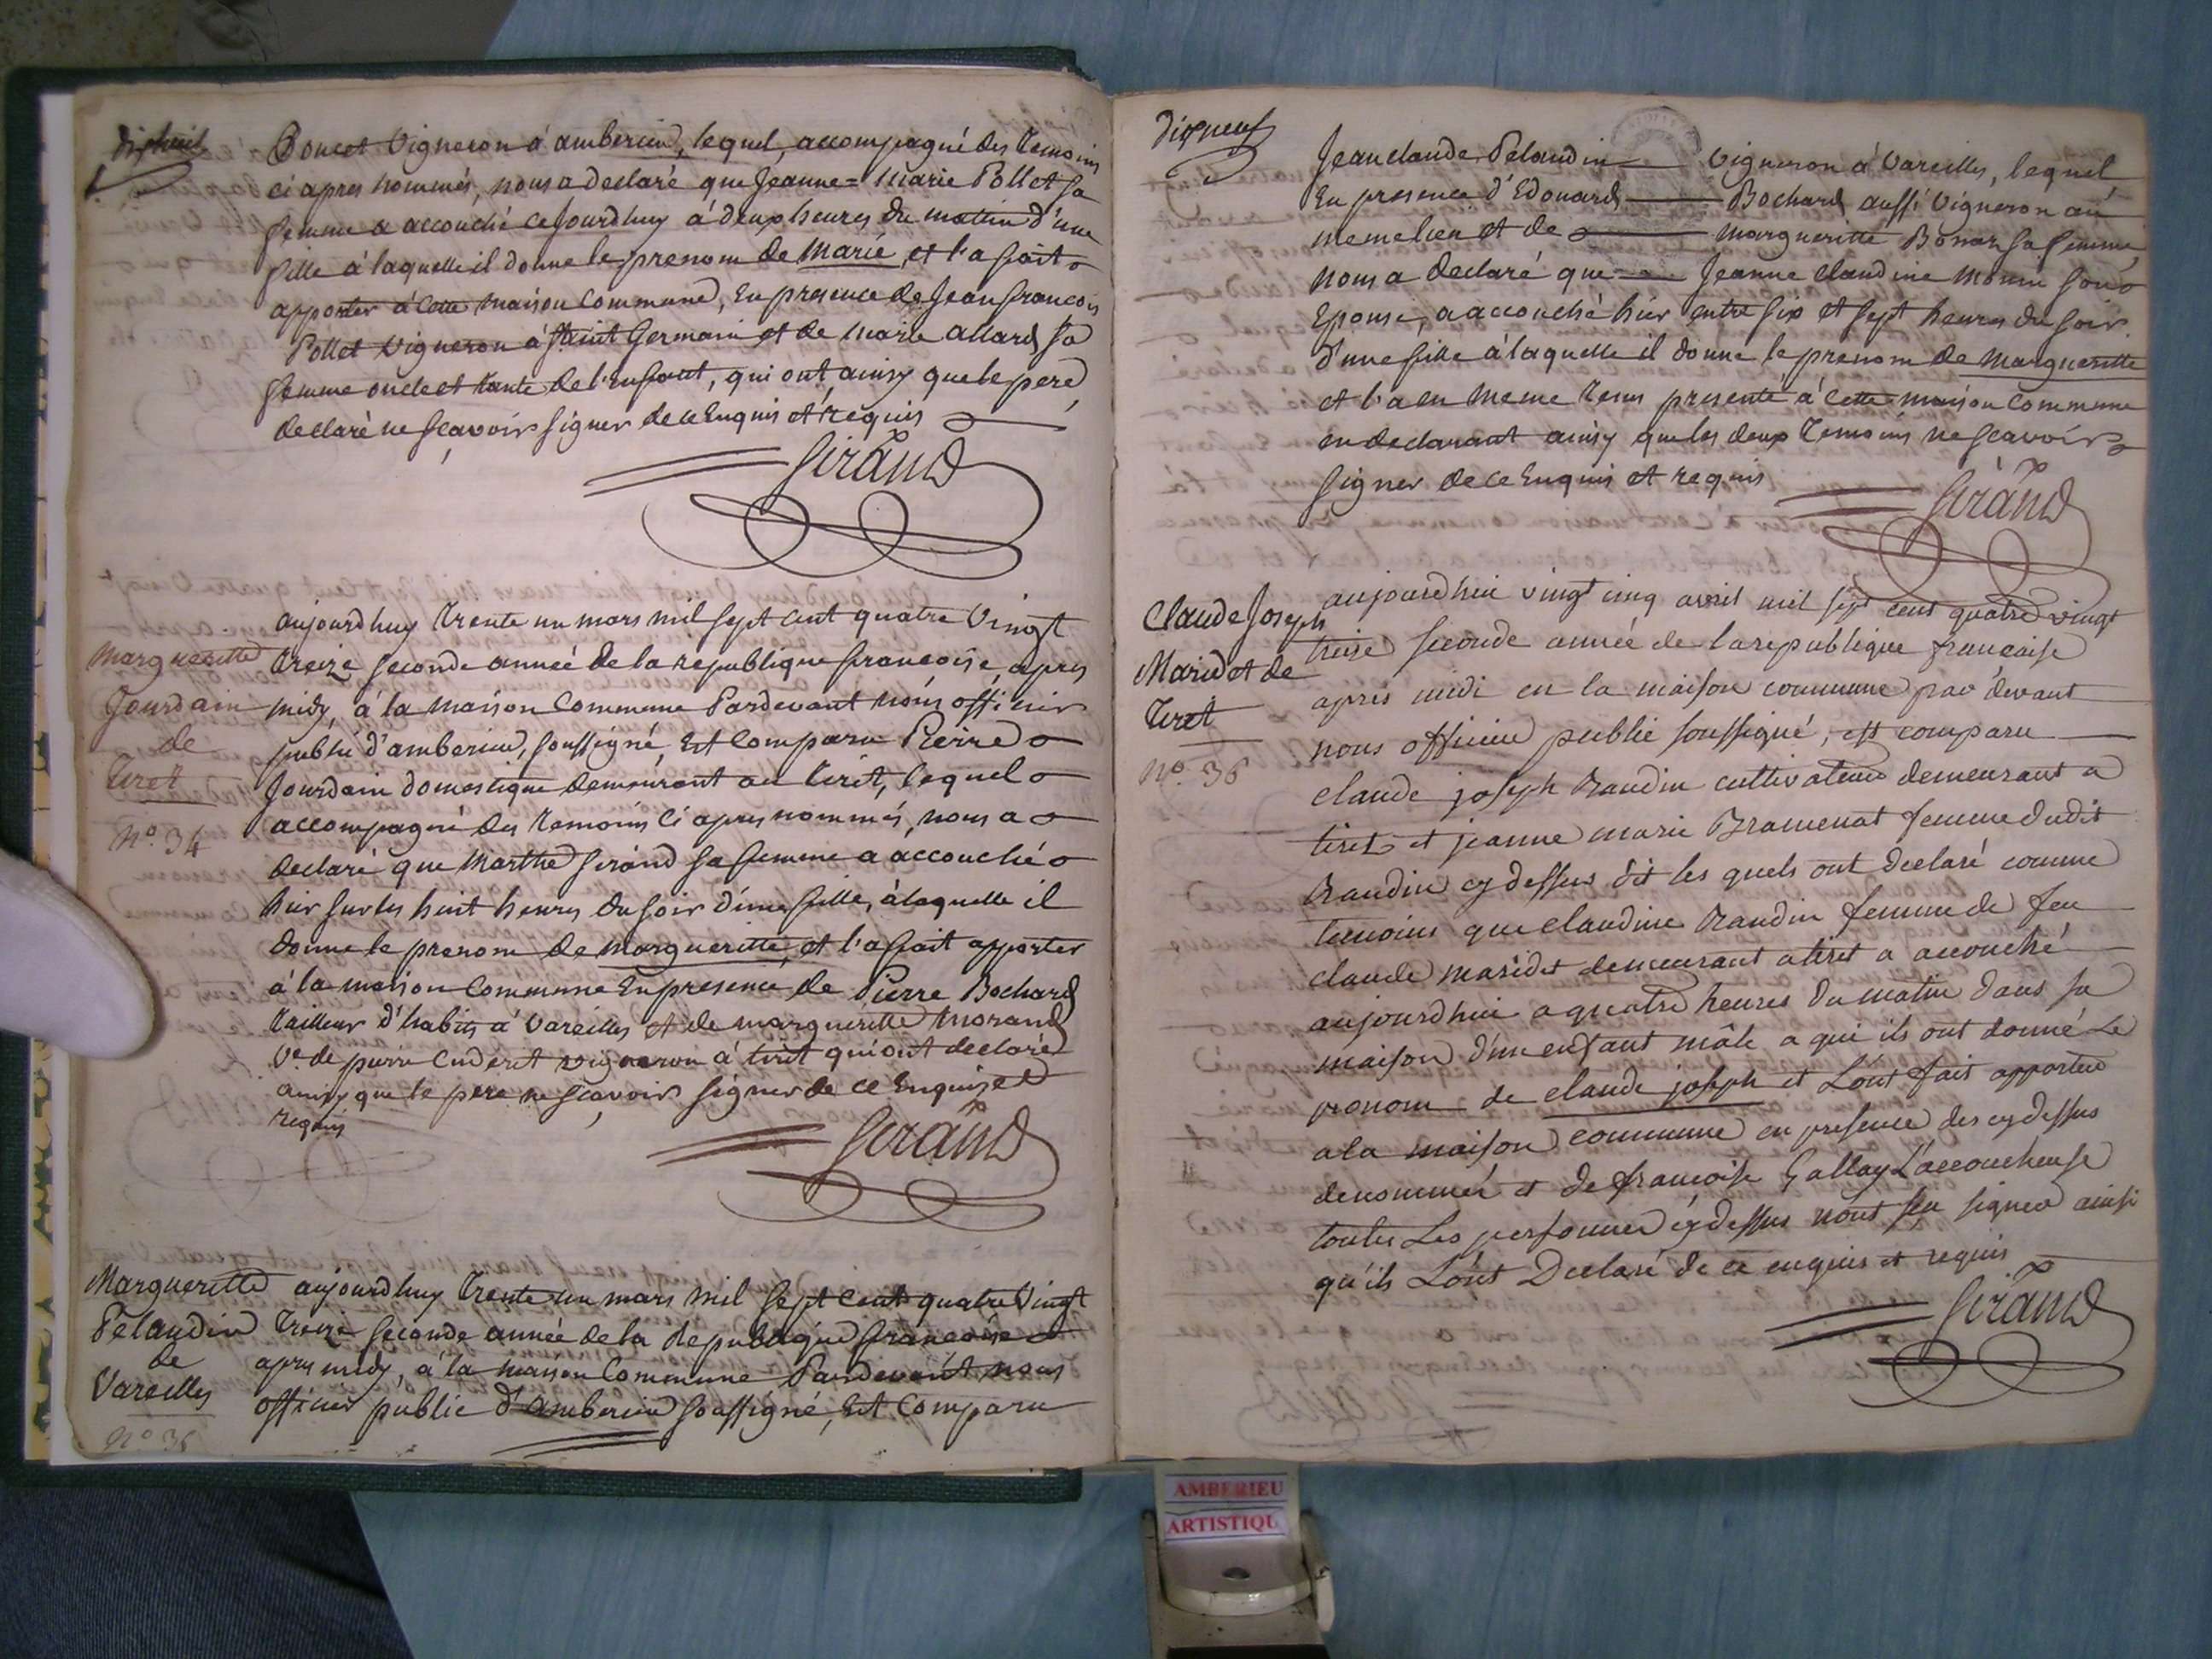 dixhuit
Poncet Vigneron à amberieu, lequel, accompagné des temoins
ci apres nommés, nous a declaré que Jeanne = Marie Pollet sa
femme a accouché cejourdhuy à deux heures du matin d'une
fille à laquelle il donne le prenom de Marie, et l'a fait
apporter à cette maison Commune, En presence de Jean francois
Pollet Vigneron à Saint Germain et de Marie allard sa
femme oncle et tante de l'Enfant, qui ont ainsy que le pere
declaré ne scavoir signer de ce Enquis et requis
Girand
Margueritte
Jourdain
de
tiret
N° 34
aujourdhuy trente un mars mil sept cent quatre Vingt
treize seconde année de la republique francoise, apres
midy, à la maison Commune Pardevant nous officier
public d'amberieu, soussigné, Est Comparu Pierre
Jourdain domestique demeurant au tiret, lequel
accompagné des temoins ci apres nommés, nous a
declaré que Marthe Girand sa femme a accouché
hier sur les huit heures du soir d'une fille, à laquelle il
donne le prenom de Margueritte, et l'a fait apporter
à la maison Commune En presence de Pierre Bochard
tailleur d'habits à Vareilles et de margueritte Morand
Ve. de pierre vigneron à tiret qui ont declaré
ainsy que le pere ne scavoir signer de ce Enquis et
requis
Girand
Margueritte
Pelaudin
de
Vareilles
N° 35
aujourdhuy trente un mars mil sept cent quatre Vingt
treize seconde année de la Republique francoise
apres midy, à la maison Commune Pardevant nous
officier public d'amberieu soussigné, Est Comparu
dixneuf
Jean claude Pelaudin Vigneron à Vareilles, lequel
En presence d'Edouard Bochard aussi Vigneron au
meme lieu et de margueritte Bonar sa femme,
nous a declaré que Jeanne claudine Monin son
Epouse, a accouché hier entre six et sept heures du soir
d'une fille à laquelle il donne le prenom de Margueritte
et l'a en meme tems presenté à cette maison Commune
en declarant ainsy que les deux temoins ne scavoir
signer de ce Enquis et requis
Girand
Claude Joseph
Maridet de
tiret
N° 36
aujourdhui vingt cinq avril mil sept cent quatre vingt
treise seconde année de la republique francaise
apres midi en la maison commune par devant
nous officier public soussigné, est comparu
claude joseph Raudin cultivateur demeurant a
tiret et jeanne marie Bramenat femme dudit
Raudin cy dessus dit les quels ont declaré comme
temoins que claudine Raudin femme de feu
claude maridet demeurant a tiret a accouché
aujourdhui a quatre heures du matin dans sa
maison d'un enfant mâle a qui ils ont donné Le
pronom de claude joseph et L'ont fait apporter
a la maison commune en presence des cy dessus
denommés et de francoise Gallay L'accoucheuse
toutes Les personnes cy dessus n'ont su signer ainsi
qu'ils L'ont Declaré de ce enquis et requis
Girand
AMBERIEU
ARTISTIQU